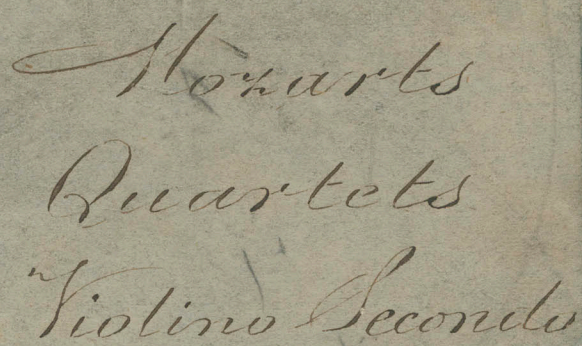 Mozarts
Quartets
Violino Secondo